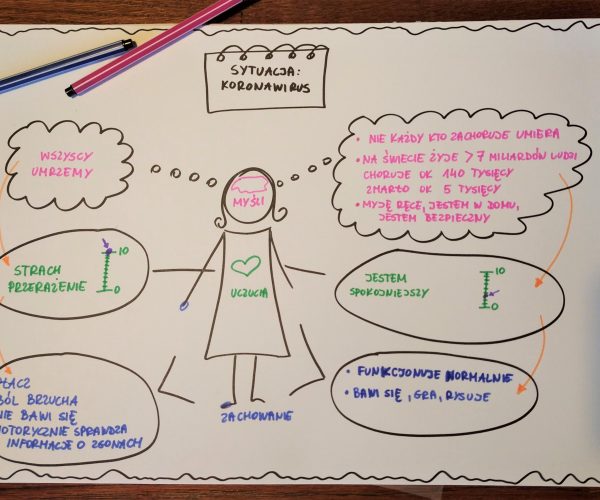 SYTUACJA:
KORONAWIRUS
WSZYSCY
UMRZEMY
• NIE KAŻDY KTO ZACHORUJE UMIERA
• NA ŚWIECIE ŻYJE >7 MILIARDÓW LUDZI
CHORUJE OK 140 TYSIĘCY
ZMARŁO OK 5 TYSIĘCY
• MYJĘ RĘCE, JESTEM W DOMU,
JESTEM BEZPIECZNY
MYŚLI
STRACH
PRZERAŻENIE
10
0
UCZUCIA
JESTEM
SPOKOJNIEJSZY
10
0
PŁACZ
BÓL BRZUCHA
NIE BAWI SIĘ
NOTORYCZNIE SPRAWDZA
INFORMACJE O ZGONACH
ZACHOWANIE
• FUNKCJONUJE NORMALNIE
• BAWI SIĘ, GRA, RYSUJE